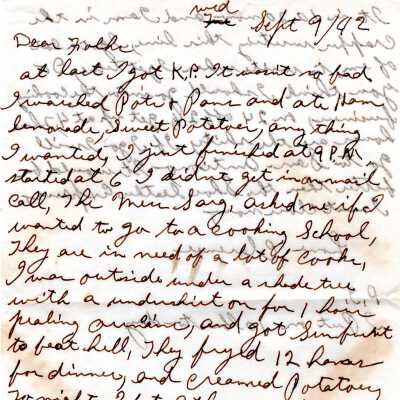 wed
Sept 9/42
Dear Folks
at last I got K.P. It wasn't so bad
I washed Pots & Pans and ate Ham
lemonade, Sweet Potatoes, any thing
I wanted, I just finished at 9 P.M.
started at 6 I didnt get in on mail
call, The Mess Sarg, asked me if I
wanted to go to a cooking School,
They are in need of a lot of cooks,
I was outside under a shade tree
with a undershirt on for 1 hour
pealing and got Sunburnt
to beat hell, They fryed 12 hams
for dinner, and creamed Potatoes